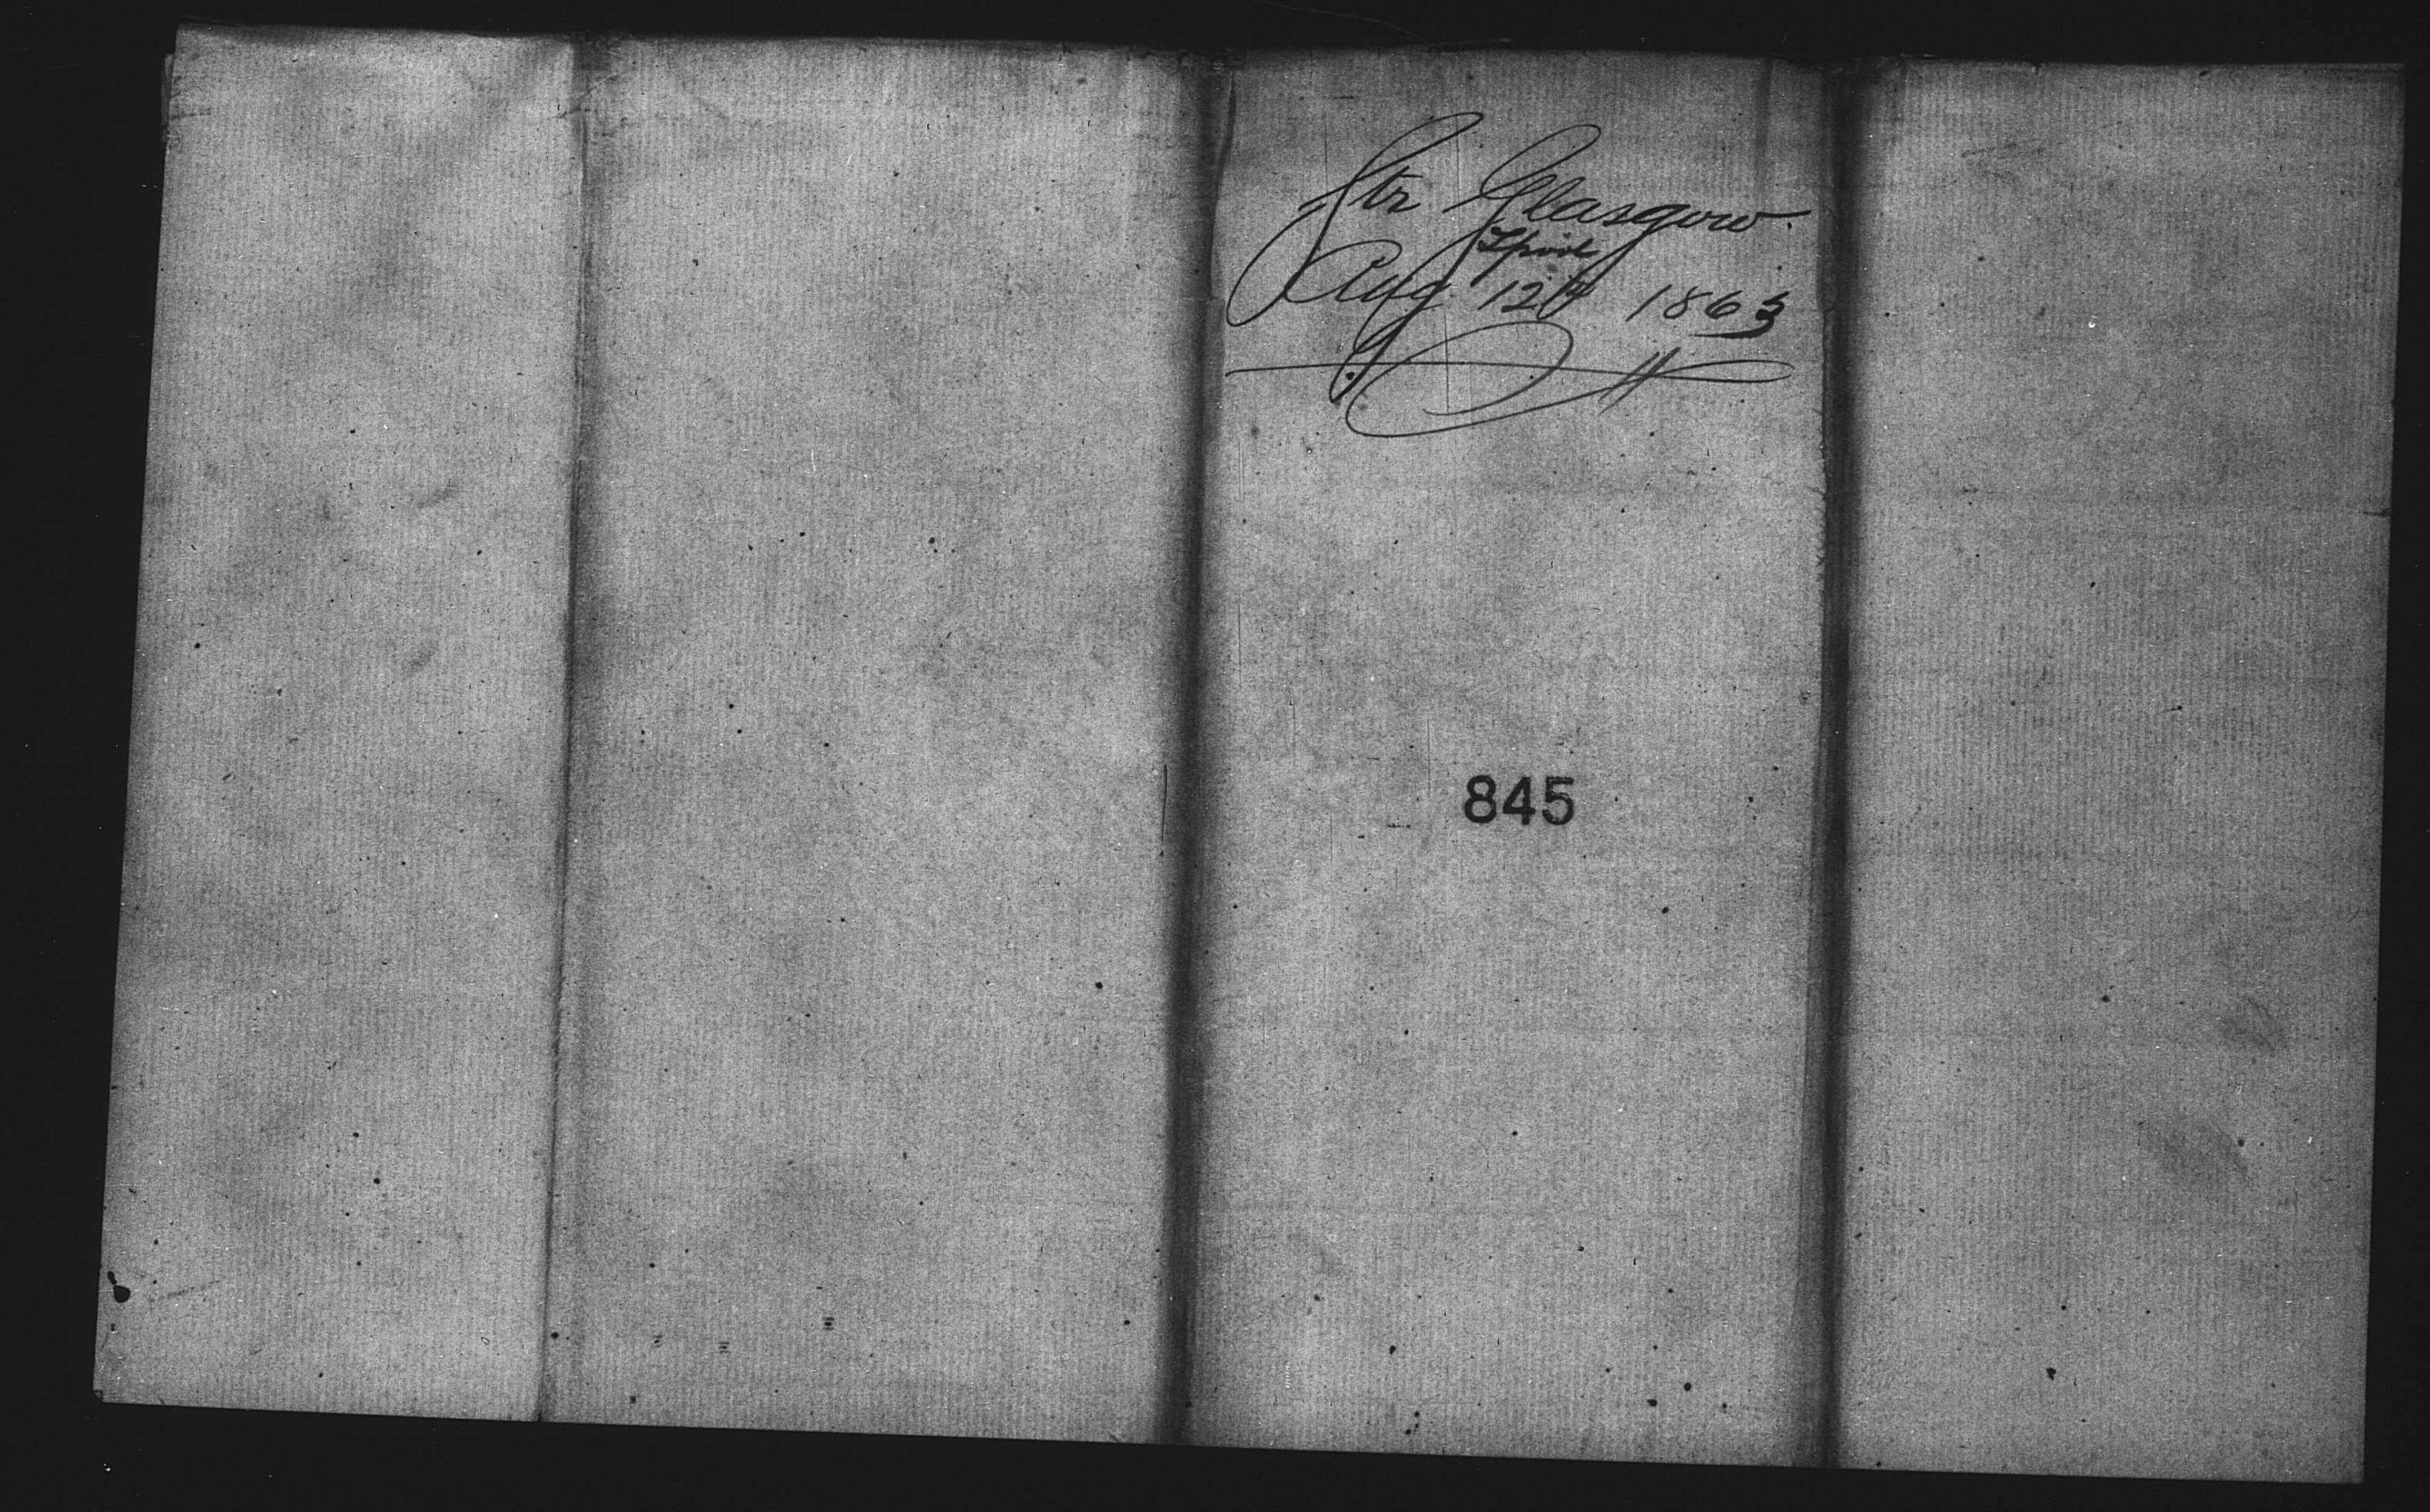 Str Glasgow.
Lpool
Aug 12th 1863
845